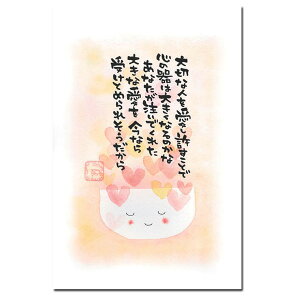 大切な人を愛し許すことで
心の器は大きくなるのかな
あなたが注いでくれた
大きな愛を今なら
受けとめられそうだから